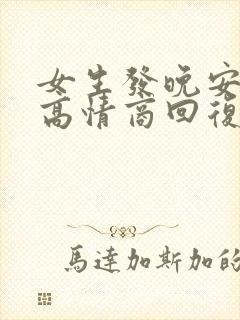 女生發晚安
高情商回復
馬達加斯加的